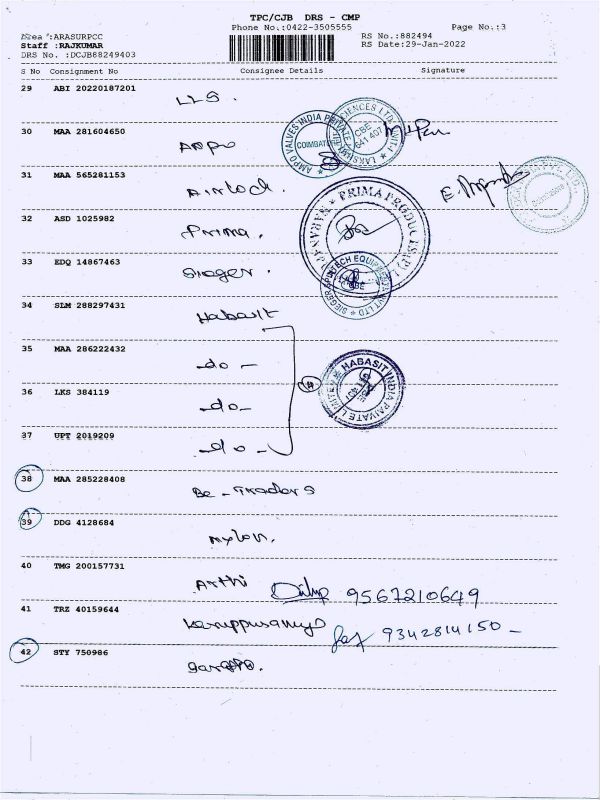 TPC/CJB DRS - CMP
Phone No.:0422-3505555 Page No.:3
Area :ARASURPCC RS No.:882494
Staff :RAJKUMAR RS Date:29-Jan-2022
DRS No. :DCJB88249403
S No Consignment No Consignee Details Signature
29 ABI 20220187201
LLS.
30 MAA 281604650
Ampo
AMPO VALVES INDIA PRIVATE
COIMBATORE
CBE
641 407
31 MAA 565281153
Airloch.
32 ASD 1025982
Prima.
PRIMA PRODUCTS
33 EDQ 14867463
Sieger.
34 SLM 288297431
Habasit
35 MAA 286222432
-do-
4
HABASIT INDIA PRIVATE LIMITED
36 LKS 384119
-do-
37 UPT 2019209
-do-
38 MAA 285228408
Be-Traders
39 DDG 4128684
Nylon.
40 TMG 200157731
Arthi 9567210649
41 TRZ 40159644
Karuppusamy 9342814150 -
42 STY 750986